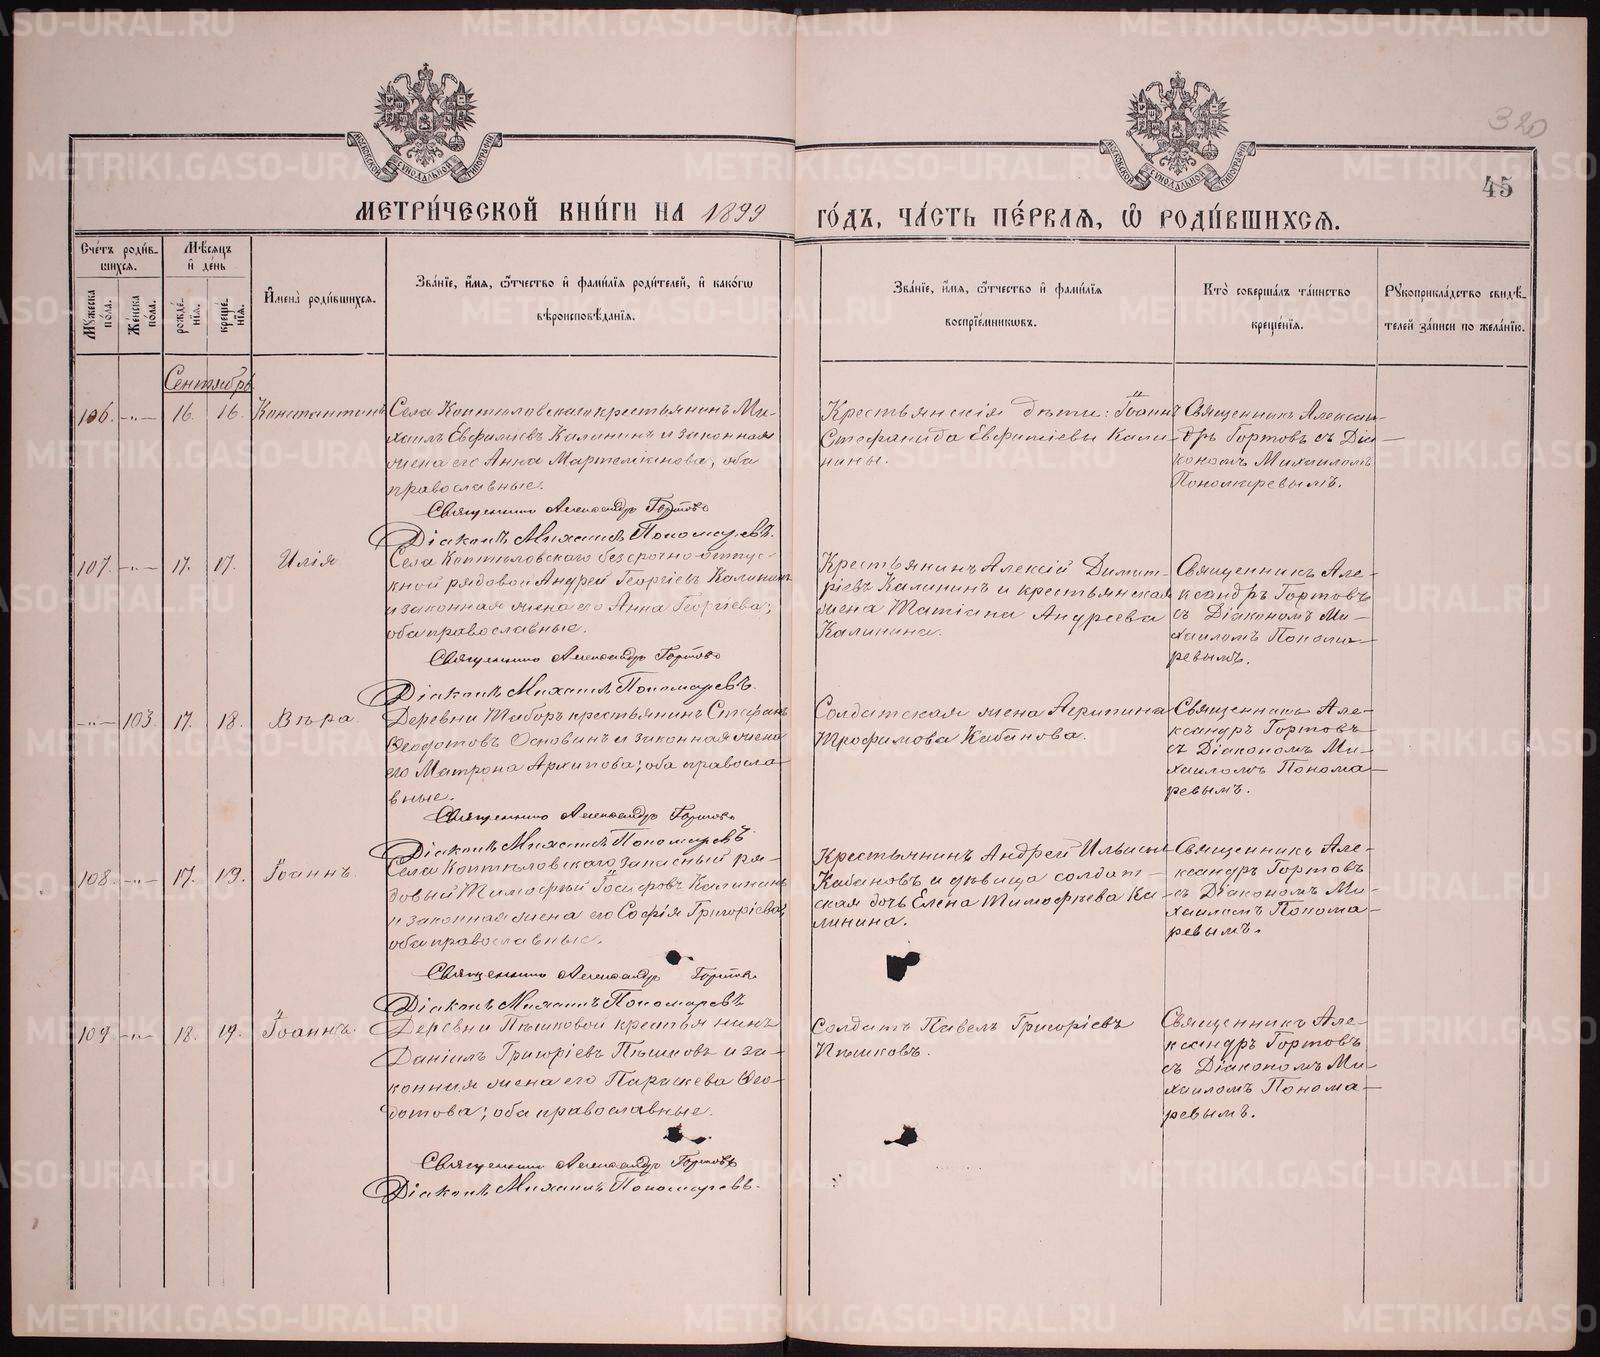 320
45
МЕТРИ́ЧЕСКОЙ КНИ́ГИ НА 1899 ГО́ДЪ, ЧА́СТЬ ПЕ́РВАЯ, Ѡ РОДИ́ВШИХСЯ.
Сче́тъ роди́в-
шихся.
Мѣсяцъ
и де́нь
Му́жеска
по́ла.
Же́нска
по́ла.
рожде́-
нїя.
креще́-
нїя.
Имена̀ роди́вшихся.
Зва́нїе, и́мя, ѻ́тчество и фами́лїя роди́телей, и како́гѡ
вѣроисповѣ́данїя.
Зва́нїе, и́мя, ѻ́тчество и фами́лїя
воспрїе́мникѡвъ.
Кто̀ соверша́лъ та́инство
креще́нїя.
Рꙋкоприкла́дство свидѣ́-
телей за́писи по жела́нїю.
Сентябрь
106. -„- 16. 16. Константинъ
Села Коптѣловскаго крестьянинъ Ми-
хаилъ Евфиміевъ Калининъ и законная
жена его Анна Мартеміанова, оба
православные.
Священникъ Александръ Гортовъ
Діаконъ Михаилъ Пономаревъ.
Крестьянскія дѣти: Іоаннъ
Стефанида Евфиміевы Кали-
нины.
Священникъ Алексан-
дръ Гортовъ съ Діа-
кономъ Михаиломъ
Пономаревымъ.
107. -„- 17. 17. Илія
Села Коптѣловскаго безсрочно-отпус-
кной рядовой Андрей Георгіевъ Калининъ
и законная жена его Анна Георгіева;
оба православные.
Священникъ Александръ Гортовъ
Діаконъ Михаилъ Пономаревъ.
Крестьянинъ Алексій Димит-
ріевъ Калининъ и крестьянская
жена Татіана Андреева
Калинина.
Священникъ Але-
ксандръ Гортовъ
съ Діакономъ Ми-
хаиломъ Понома-
ревымъ.
-„- 103. 17. 18. Вѣра
Деревни Таборъ крестьянинъ Стефанъ
Ѳеодотовъ Основинъ и законная жена
его Матрона Архипова; оба правосла-
вные.
Священникъ Александръ Гортовъ
Діаконъ Михаилъ Пономаревъ
Солдатская жена Агрипина
Трофимова Кабанова.
Священникъ Але-
ксандръ Гортовъ
съ Діакономъ Ми-
хаиломъ Понома-
ревымъ.
108. -„- 17. 19. Іоаннъ.
Села Коптѣловскаго запасный ря-
довый Тимофей Іосифовъ Калининъ
и законная жена его Софія Григоріева;
оба православные.
Священникъ Александръ Гортовъ
Діаконъ Михаилъ Пономаревъ
Крестьянинъ Андрей Ильинъ
Кабановъ и дѣвица солдат-
ская дочь Елена Тимофѣева Ка-
линина.
Священникъ Але-
ксандръ Гортовъ
съ Діакономъ Ми-
хаиломъ Понома-
ревымъ.
109. -„- 18. 19. Іоаннъ.
Деревни Пѣшковой крестьянинъ
Даніилъ Григоріевъ Пѣшковъ и за-
конная жена его Параскева Ѳео-
дотова; оба православные.
Священникъ Александръ Гортовъ
Діаконъ Михаилъ Пономаревъ.
Солдатъ Павелъ Григоріевъ
Пѣшковъ.
Священникъ Але-
ксандръ Гортовъ
съ Діакономъ Ми-
хаиломъ Понома-
ревымъ.
METRIKI.GASO-URAL.RU